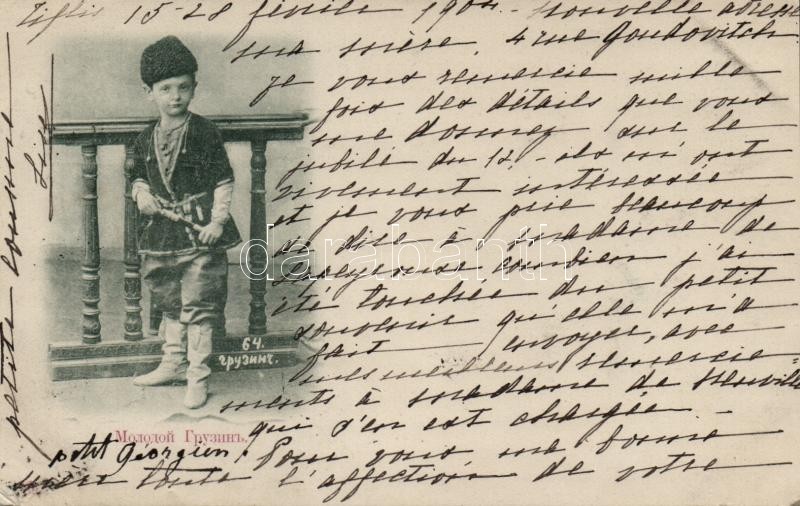 Tiflis 15-28 février 1904. Nouvelle adresse
ma mère, 4 rue Goudovitch
je vous remercie mille
fois des détails que vous
me donnez sur le
jubilé du 12, ils m'ont
vivement intéressée
et je vous prie beaucoup
de dire à Madame de
combien j'ai
été touchée du petit
souvenir qu'elle m'a
fait envoyer, avec
mes meilleurs remercie=
ments à Madame de
qui s'en est chargée.
Pour vous ma bonne
mère toute l'affection de votre
petite
Lise
64.
грузинч.
Молодой Грузинъ.
petit Georgien.
darabanth